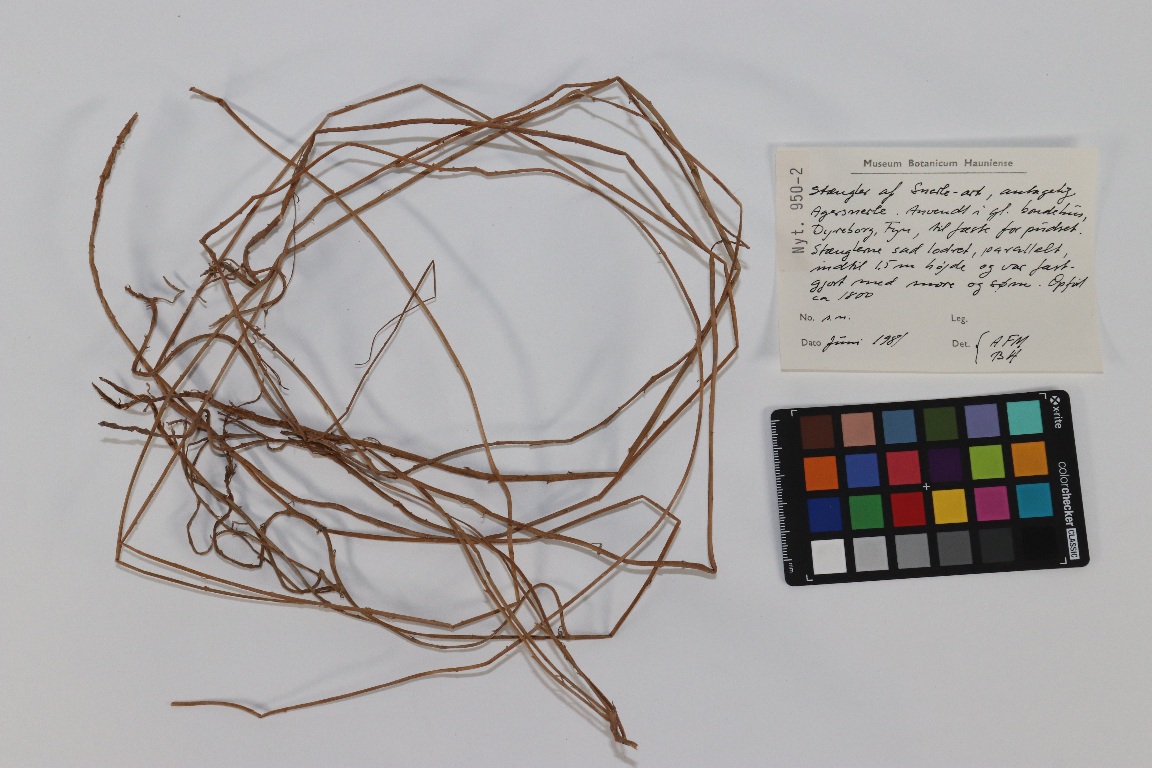 Museum Botanicum Hauniense
Nyt. 950-2
Stængler af Snerle-art, antagelig
Agersnerle. Anvendt i gl. bondehus,
Dyreborg, Fyn, til fæste for pudset.
Stænglerne sad lodret, parallelt,
indtil 1,5 m højde og var fast-
gjort med snore og søm. Opført
ca 1800
No. s.n. Leg.
Dato Juni 1981 Det. { AFM
BH
x-rite
colorchecker CLASSIC
mm